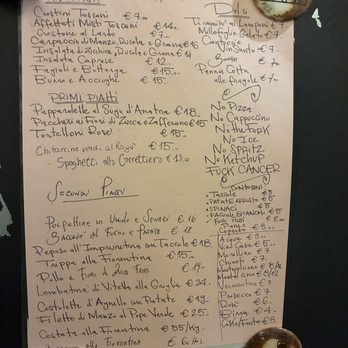 Crostini Toscani € 7.00
Affettati Misti Toscani € 14.
Crostone al Lardo € 7.
Carpaccio di Manzo, Rucola e Grana € 16
Insalata di Zucchine, Rucola e Grana € 14
Insalata Caprese € 12.
Fagioli e Bottarga € 15.
Burro e Acciughe € 15.
PRIMI PIATTI
Pappardelle al Sugo d'Anatra € 18.
Paccheri ai Fiori di Zucca e Zafferano € 15.
Tortelloni Rosè € 15.
Chitarrine verdi al Ragù € 15.
Spaghetti alla Carrettiera € 13.00
Secondi Piatti
Polpettine in Umido e Spinaci € 16
Baccalà al Forno e Patate € 18
Peposo all'Imprunetina con Taccole € 18
Trippa alla Fiorentina € 15.
Pollo e Fiori di Zucca Fritti € 19
Lombatina di Vitella alla Griglia € 24.
Costolette d'Agnello con Patate € 19.
Filetto di Manzo al Pepe Verde € 25.
Costata alla Fiorentina € 55/Kg.
alla Fiorentina €
Dolci
Tiramisù ai Lamponi € 7
Millefoglie Gelato € 7
Cantucci
Vin Santo € 7.
Bongo € 7.
Panna Cotta
alle fragole € 7.
No Pizza
No Cappuccino
No Ice
No SPRITZ
No Ketchup
FUCK CANCER
CONTORNI
TACCOLE € 5
PATATE ARROSTO € 5
SPINACI € 5
FAGIOLI BIANCHI € 5
Pane e
Coperto
Acqua € 3.
Vino Casa € 5.
Chianti € 7.
Vermentino € 7
Prosecco € 7
Rosè € 6.
Birra € 4.